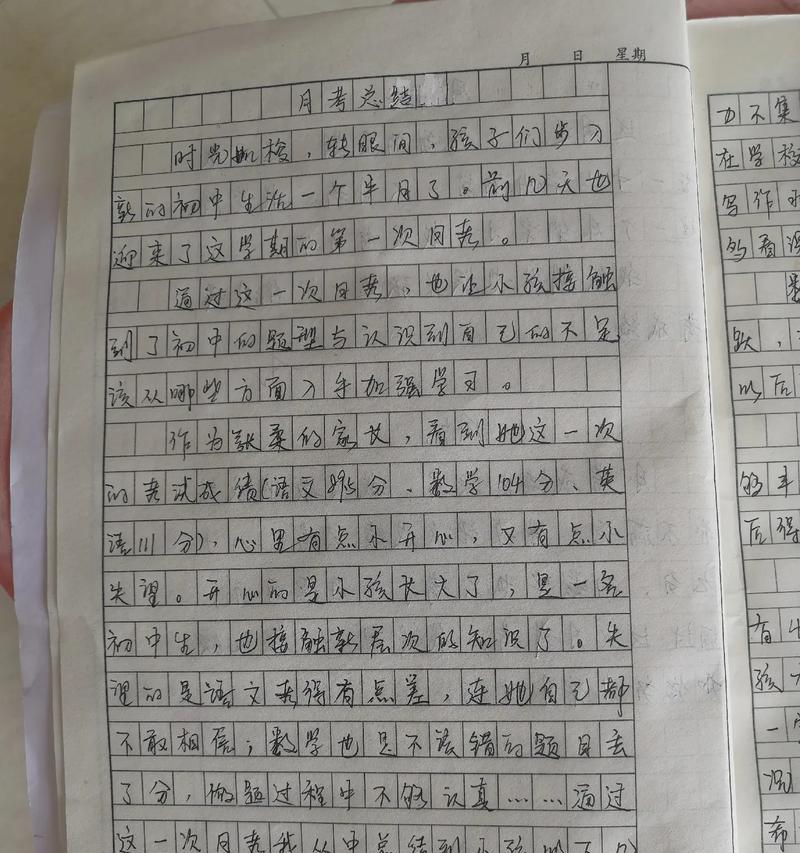 月 日 星期
月考总结
时光如梭，转眼间，孩子们步入
新的初中生活一个半月了。前几天也
迎来了这学期的第一次月考。
通过这一次月考，也让小孩接触
到了初中的题型与认识到自己的不足
该从哪些方面入手加强学习。
作为张柔的家长，看到她这一次
的考试成绩(语文89.5分、数学104分、英
语111分)，心里有点小开心，又有点小
失望。开心的是小孩长大了，是一名
初中生，也接触新层次的知识了。失
望的是语文考得有点差，连她自己都
不敢相信；数学也是不该错的题目丢
了分，做题过程中不够认真……通过
这一次月考我从中总结到小孩以下几
力不集
在学校
写作
多看课
跃，
以后
够
后得
有
孩
一
况
希